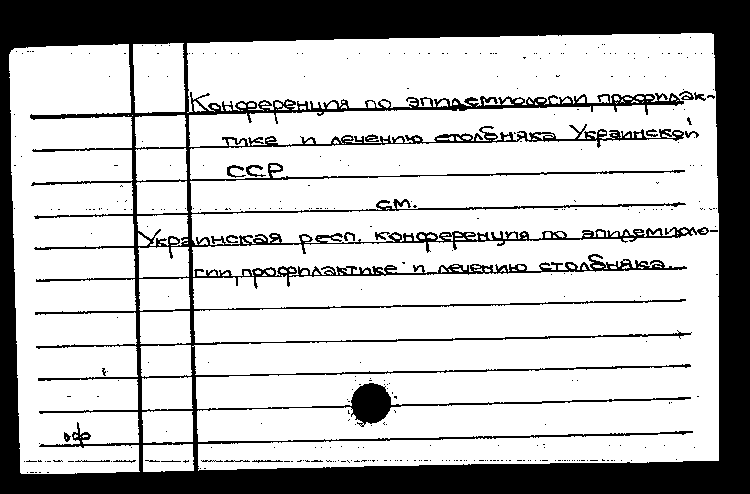 Конференция по эпидемиологии, профилак-
тике и лечению столбняка Украинской
ССР
см.
Украинская респ. конференция по эпидемиоло-
гии, профилактике и лечению столбняка.